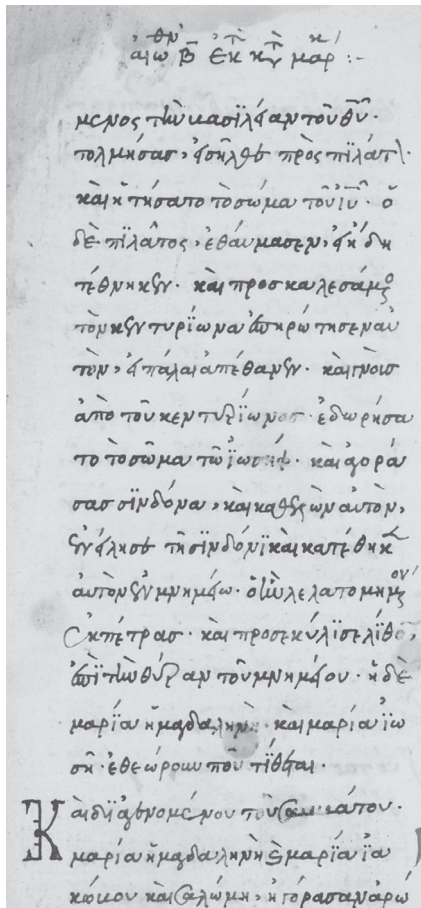 μενος τὴν βασϊλείαν τοῦ θῦ·
τολμήσας, εἰσῆλθε πρὸς πϊλάτ
καὶ ἠτήσατο τὸ σῶμα τοῦ ἰῦ· ὁ
δὲ πϊλάτος, ἐθαύμασεν, εἰ ἤδη
τέθνηκεν· καὶ προσκαλεσάμος
τὸν κεντυρίωνα ἐπηρώτησεν αὐ
τὸν, εἰ πάλαι ἀπέθανεν· καὶ γνοὺσ
ἀπὸ τοῦ κεντυρίωνος· ἐδωρήσα
το τὸ σῶμα τῶ ἰωσήφ· καὶ ἀγορά
σασ σϊνδόνα, καὶ καθελὼν αὐτὸν,
ἐνείλησε τῆ σϊνδόνϊ καὶ κατέθηκ
αὐτὸν ἐν μνημείω· ὃ ἦν λελατομημένον
ἐκ πέτρασ· καὶ προσεκύλϊσε λίθο
ἐπὶ τὴν θύραν τοῦ μνημείου· ἡ δὲ
μαρΐα ἡ μαγδαληνὴ· καὶ μαρία ϊω
σῆ· ἐθεώρουν ποῦ τίθεται·
Καὶ διαγενομένου τοῦ σαββάτου·
μαρία ἡ μαγδαληνὴ ϗ μαρία ἡ ϊα
κώβου καὶ σαλώμη, ἠγόρασαν ἀρώ